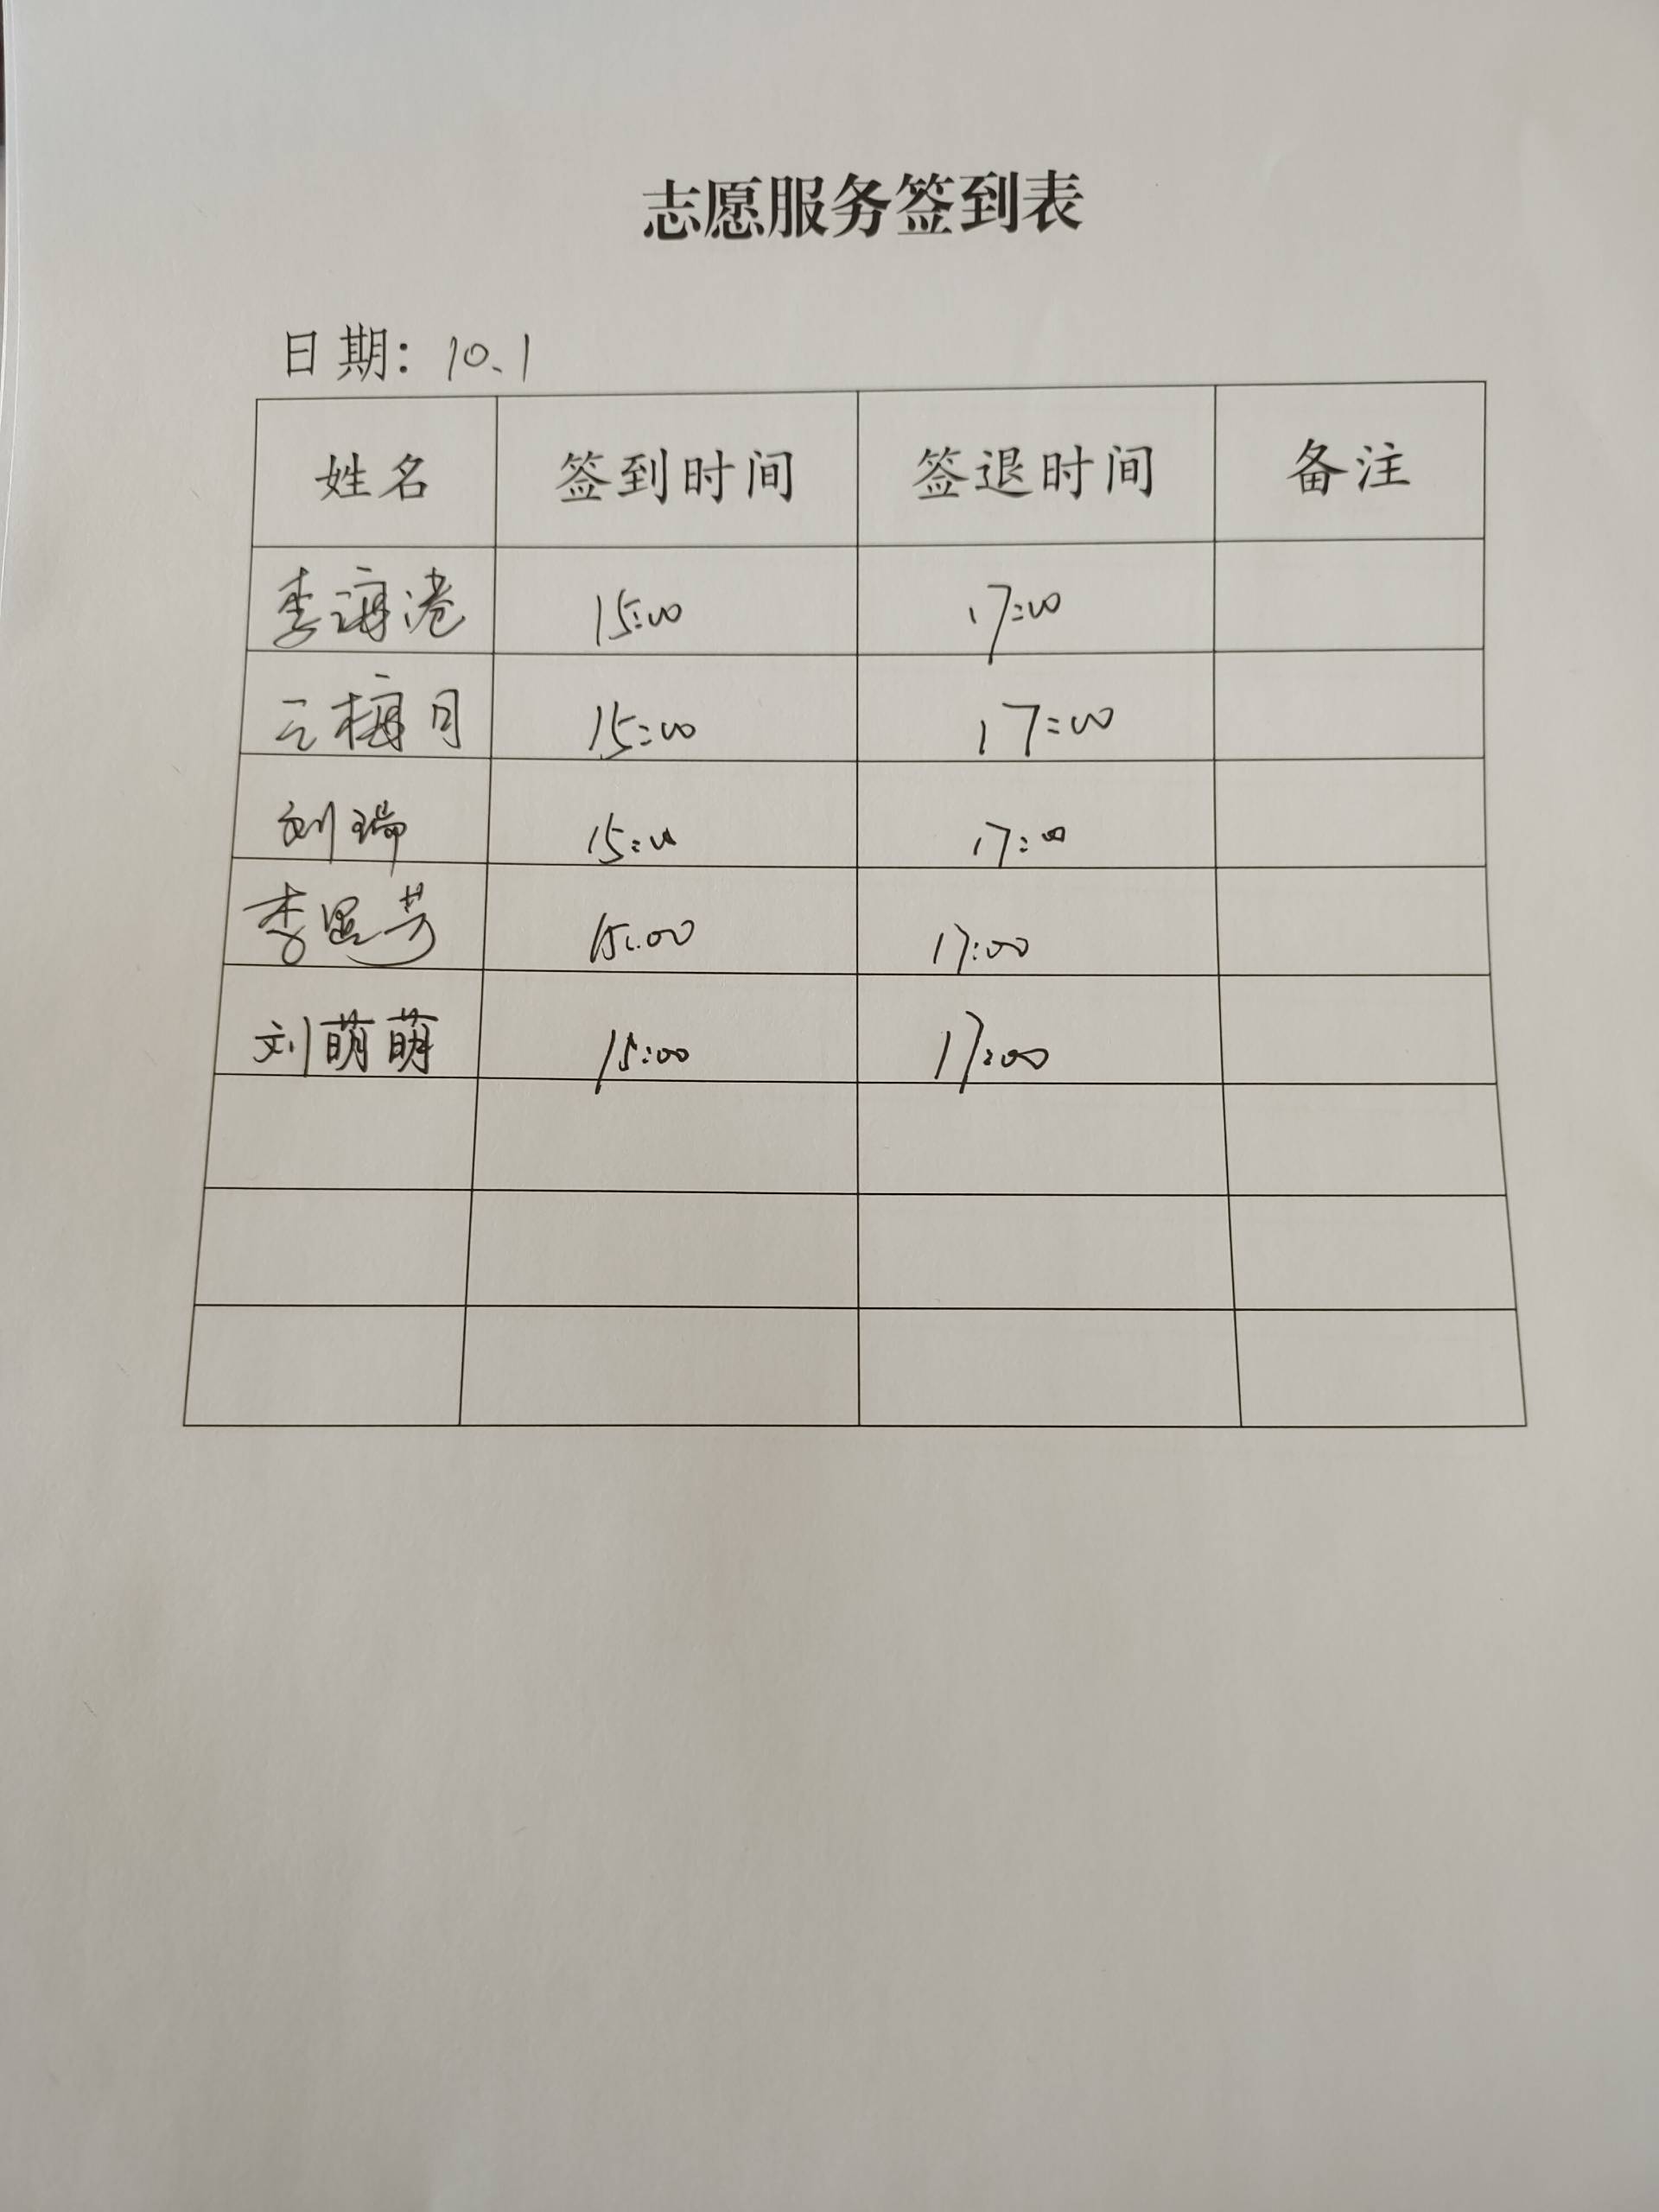 志愿服务签到表
日期：10.1
姓名 签到时间 签退时间 备注
李海港 15:00 17:00
云梅月 15:00 17:00
刘瑞 15:00 17:00
李思芳 15:00 17:00
刘萌萌 15:00 17:00